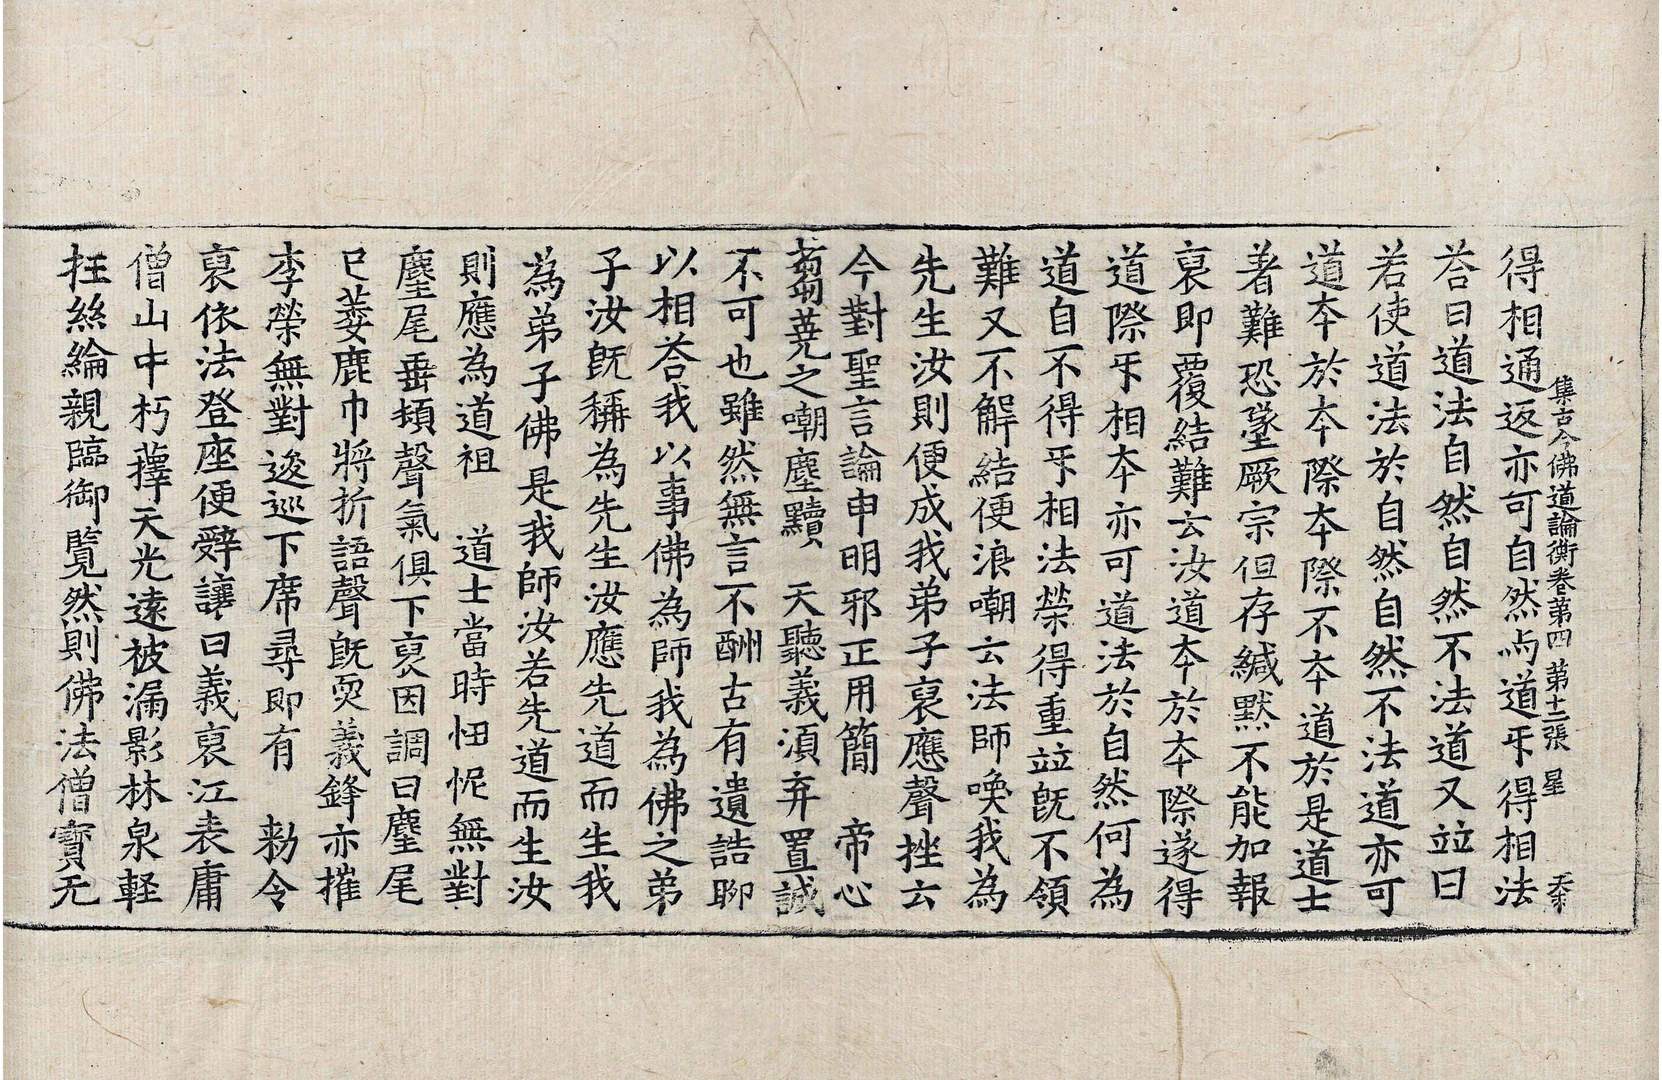 集古今佛道論衡卷第四 第十二張 星
得相通返亦可自然与道㸦得相法
荅曰道法自然自然不法道又竝曰
若使道法於自然自然不法道亦可
道夲於夲際夲際不夲道於是道士
著難恐墜厥宗但存緘默不能加報
裒即覆結難云汝道夲於夲際遂得
道際㸦相夲亦可道法於自然何為
道自不得㸦相法榮得重竝旣不領
難又不解結便浪嘲云法師喚我為
先生汝則便成我弟子裒應聲挫云
今對聖言論申明邪正用簡 帝心
芻蕘之嘲塵黷 天聽義湏弃置誠
不可也雖然無言不酬古有遺誥聊
以相荅我以事佛為師我為佛之弟
子汝旣稱為先生汝應先道而生我
為弟子佛是我師汝若先道而生汝
則應為道祖 道士當時忸怩無對
麈尾垂頰聲氣俱下裒因調曰麈尾
已萎鹿巾將折語聲旣耎義鋒亦摧
李榮無對逡巡下席尋即有 勑令
裒依法登座便辤讓曰義裒江表庸
僧山中朽蘀天光遠被漏影林泉軽
抂絲綸親臨御覧然則佛法僧寶无